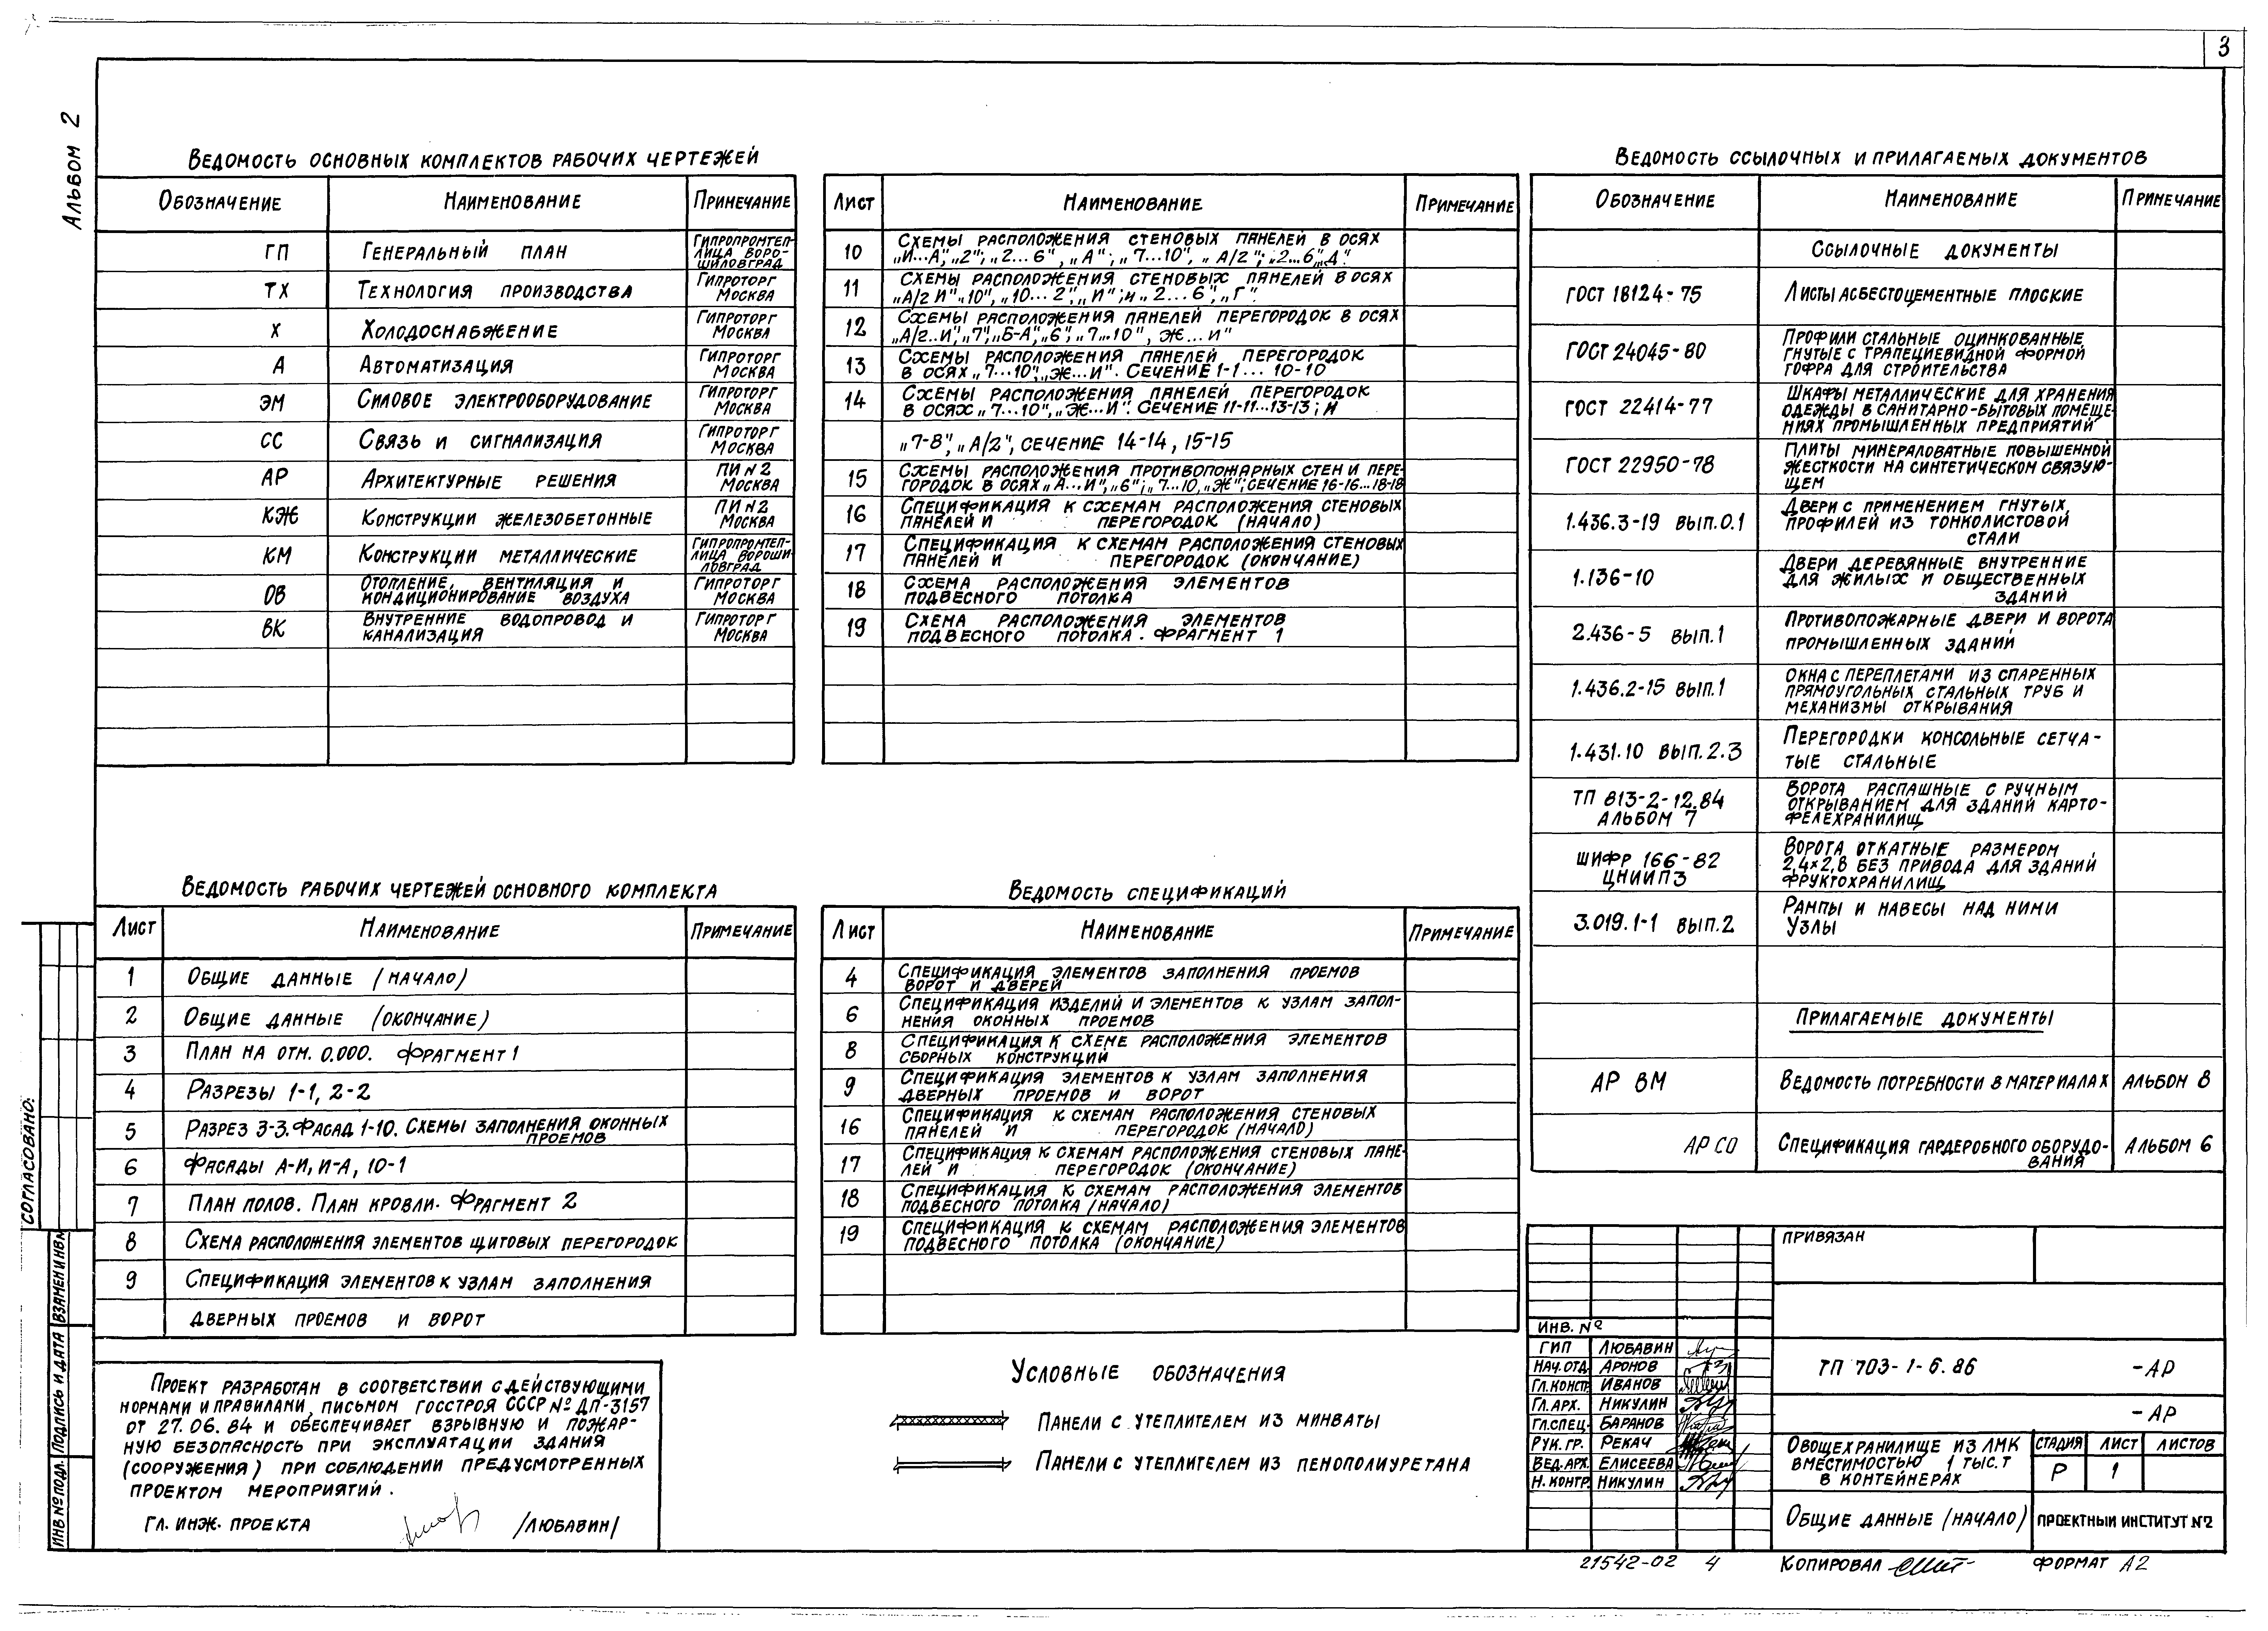 3
Альбом 2
Ведомость основных комплектов рабочих чертежей
Обозначение Наименование Примечание
ГП Генеральный план Гипропромтеп-
лица Воро-
шиловград
ТХ Технология производства Гипроторг
Москва
Х Холодоснабжение Гипроторг
Москва
А Автоматизация Гипроторг
Москва
ЭМ Силовое электрооборудование Гипроторг
Москва
СС Связь и сигнализация Гипроторг
Москва
АР Архитектурные решения ПИ №2
Москва
КЖ Конструкции железобетонные ПИ №2
Москва
КМ Конструкции металлические Гипропромтеп-
лица Вороши-
ловград
ОВ Отопление, вентиляция и
кондиционирование воздуха Гипроторг
Москва
ВК Внутренние водопровод и
канализация Гипроторг
Москва
Лист Наименование Примечание
10 Схемы расположения стеновых панелей в осях
„И...А", „2"; „2...6", „А"; „7...10", „А/2"; „2...6", „Д".
11 Схемы расположения стеновых панелей в осях
„А/2 И" „10", „10...2", „И"; и „2...6", „Г".
12 Схемы расположения панелей перегородок в осях
„А/2..И", „7", „Б-А", „6", „7...10", Ж...И"
13 Схемы расположения панелей перегородок
в осях „7...10", „Ж...И". Сечение 1-1... 10-10
14 Схемы расположения панелей перегородок
в осях „7...10", „Ж...И". Сечение 11-11...13-13; и
„7-8", „А/2", сечение 14-14, 15-15
15 Схемы расположения противопожарных стен и пере-
городок в осях „А...И", „6"; „7...10, „Ж"; сечение 16-16...18-18
16 Спецификация к схемам расположения стеновых
панелей и перегородок (начало)
17 Спецификация к схемам расположения стеновых
панелей и перегородок (окончание)
18 Схема расположения элементов
подвесного потолка
19 Схема расположения элементов
подвесного потолка. Фрагмент 1
Ведомость ссылочных и прилагаемых документов
Обозначение Наименование Примечание
Ссылочные документы
ГОСТ 18124-75 Листы асбестоцементные плоские
ГОСТ 24045-80 Профили стальные оцинкованные
гнутые с трапециевидной формой
гофра для строительства
ГОСТ 22414-77 Шкафы металлические для хранения
одежды в санитарно-бытовых помеще-
ниях промышленных предприятий
ГОСТ 22950-78 Плиты минераловатные повышенной
жесткости на синтетическом связую-
щем
1.436.3-19 вып.0.1 Двери с применением гнутых
профилей из тонколистовой
стали
1.136-10 Двери деревянные внутренние
для жилых и общественных
зданий
2.436-5 вып.1 Противопожарные двери и ворота
промышленных зданий
1.436.2-15 вып.1 Окна с переплетами из спаренных
прямоугольных стальных труб и
механизмы открывания
1.431.10 вып.2.3 Перегородки консольные сетча-
тые стальные
ТП 813-2-12.84
Альбом 7 Ворота распашные с ручным
открыванием для зданий карто-
фелехранилищ
Шифр 166-82
ЦНИИПЗ Ворота откатные размером
2,4×2,8 без привода для зданий
фруктохранилищ
3.019.1-1 вып.2 Рампы и навесы над ними
Узлы
Прилагаемые документы
АР ВМ Ведомость потребности в материалах Альбом 8
АР СО Спецификация гардеробного оборудо-
вания Альбом 6
Ведомость рабочих чертежей основного комплекта
Лист Наименование Примечание
1 Общие данные (начало)
2 Общие данные (окончание)
3 План на отм. 0.000. Фрагмент 1
4 Разрезы 1-1, 2-2
5 Разрез 3-3. Фасад 1-10. Схемы заполнения оконных
проемов
6 Фасады А-И, И-А, 10-1
7 План полов. План кровли. Фрагмент 2
8 Схема расположения элементов щитовых перегородок
9 Спецификация элементов к узлам заполнения
дверных проемов и ворот
Ведомость спецификаций
Лист Наименование Примечание
4 Спецификация элементов заполнения проемов
ворот и дверей
6 Спецификация изделий и элементов к узлам запол-
нения оконных проемов
8 Спецификация к схеме расположения элементов
сборных конструкций
9 Спецификация элементов к узлам заполнения
дверных проемов и ворот
16 Спецификация к схемам расположения стеновых
панелей и перегородок (начало)
17 Спецификация к схемам расположения стеновых пане-
лей и перегородок (окончание)
18 Спецификация к схемам расположения элементов
подвесного потолка (начало)
19 Спецификация к схемам расположения элементов
подвесного потолка (окончание)
Проект разработан в соответствии с действующими
нормами и правилами, письмом Госстроя СССР № ДП-3157
от 27.06.84 и обеспечивает взрывную и пожар-
ную безопасность при эксплуатации здания
(сооружения) при соблюдении предусмотренных
проектом мероприятий.
Гл. инж. проекта /Любавин/
Условные обозначения
Панели с утеплителем из минваты
Панели с утеплителем из пенополиуретана
Согласовано:
Инв № подл. Подпись и дата Взамен инв №
Привязан
Инв. №
ГИП Любавин
Нач.отд. Аронов
Гл.констр. Иванов
Гл.арх. Никулин
Гл.спец. Баранов
Рук.гр. Рекач
Вед.арх. Елисеева
Н.контр. Никулин
ТП 703-1-6.86 -АР
-АР
Овощехранилище из ЛМК
вместимостью 1 тыс.т
в контейнерах
Стадия Лист Листов
Р 1
Общие данные (начало)
Проектный институт №2
21542-02 4
Копировал
Формат А2